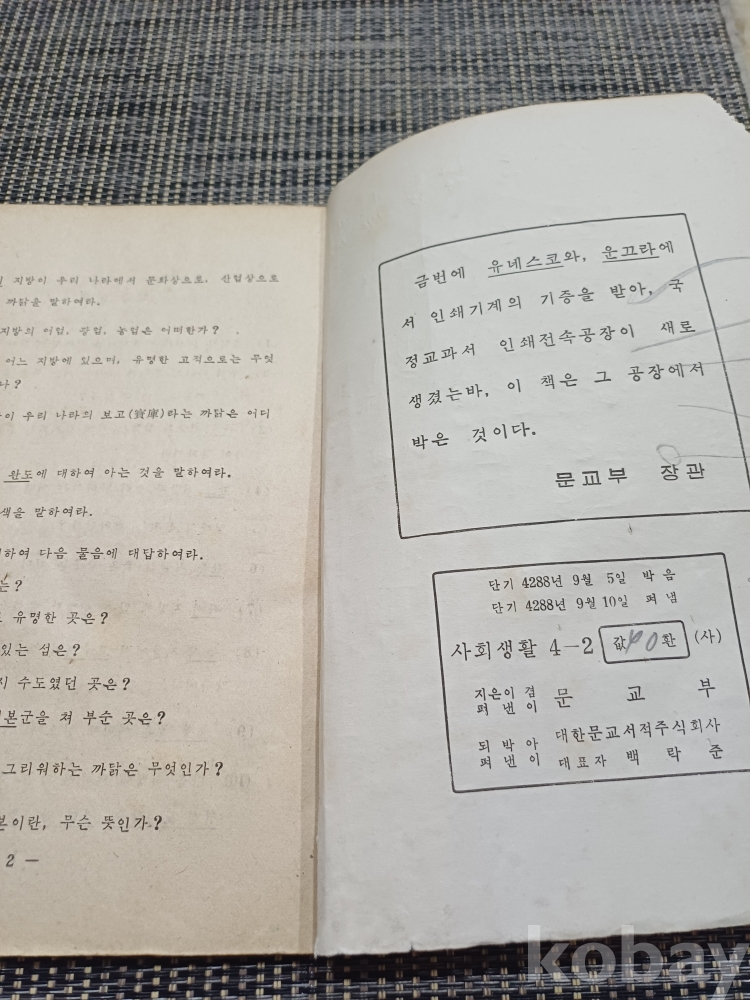 지방이 우리 나라에서 문화상으로, 산업상으로
까닭을 말하여라.
지방의 어업, 광업, 농업은 어떠한가?
어느 지방에 있으며, 유명한 고적으로는 무엇
나?
이 우리 나라의 보고(寶庫)라는 까닭은 어디
완도에 대하여 아는 것을 말하여라.
색을 말하여라.
하여 다음 물음에 대답하여라.
는?
유명한 곳은?
있는 섬은?
시 수도였던 곳은?
본군을 쳐 부순 곳은?
그리워하는 까닭은 무엇인가?
본이란, 무슨 뜻인가?
2 —
금번에 유네스코와, 운끄라에
서 인쇄기계의 기증을 받아, 국
정교과서 인쇄전속공장이 새로
생겼는바, 이 책은 그 공장에서
박은 것이다.
문교부 장관
단기 4288년 9월 5일 박음
단기 4288년 9월 10일 펴냄
사회생활 4-2 값 40 환 (사)
지은이 겸
펴낸이 문교부
되박아
펴낸이 대한문교서적주식회사
대표자 백락준
kobay